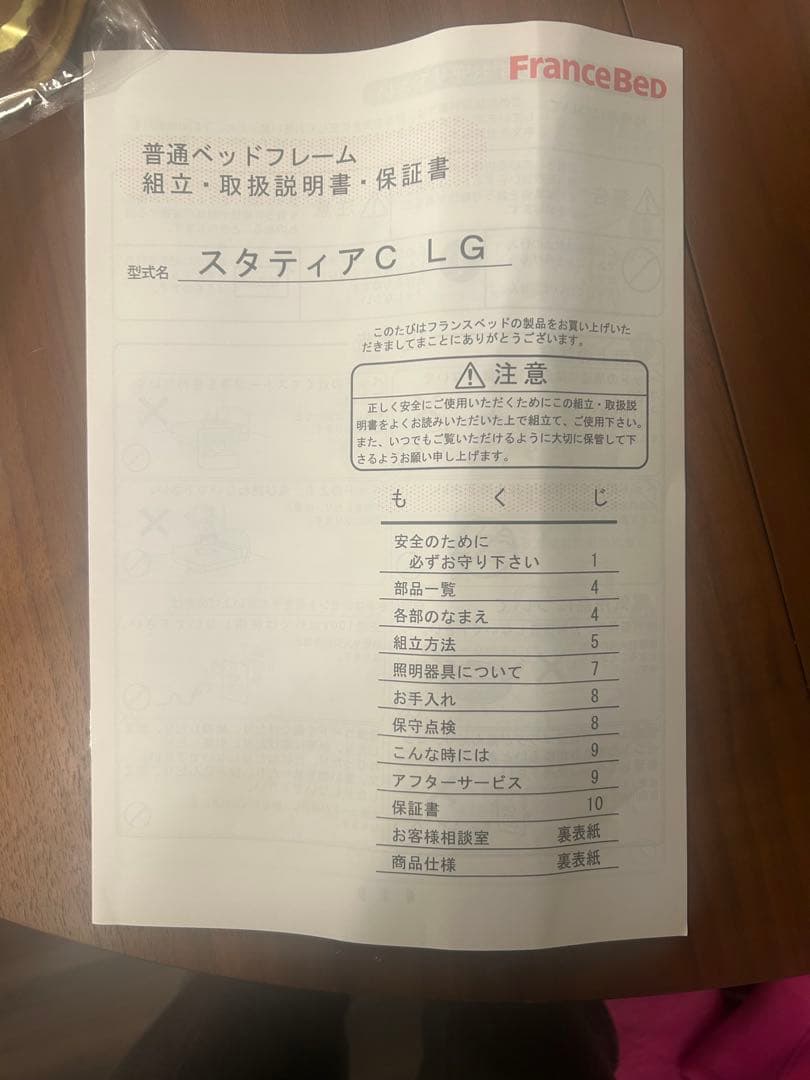 FRANCEBED
普通ベッドフレーム
組立・取扱説明書・保証書
型式名 スタティアC LG
このたびはフランスベッドの製品をお買い上げいた
だきましてまことにありがとうございます。
注意
正しく安全にご使用いただくためにこの組立・取扱説
明書をよくお読みいただいた上で組立て、ご使用下さい。
また、いつでもご覧いただけるように大切に保管して下
さるようお願い申し上げます。
もくじ
安全のために
必ずお守り下さい 1
部品一覧 4
各部のなまえ 4
組立方法 5
照明器具について 7
お手入れ 8
保守点検 8
こんな時には 9
アフターサービス 9
保証書 10
お客様相談室 裏表紙
商品仕様 裏表紙